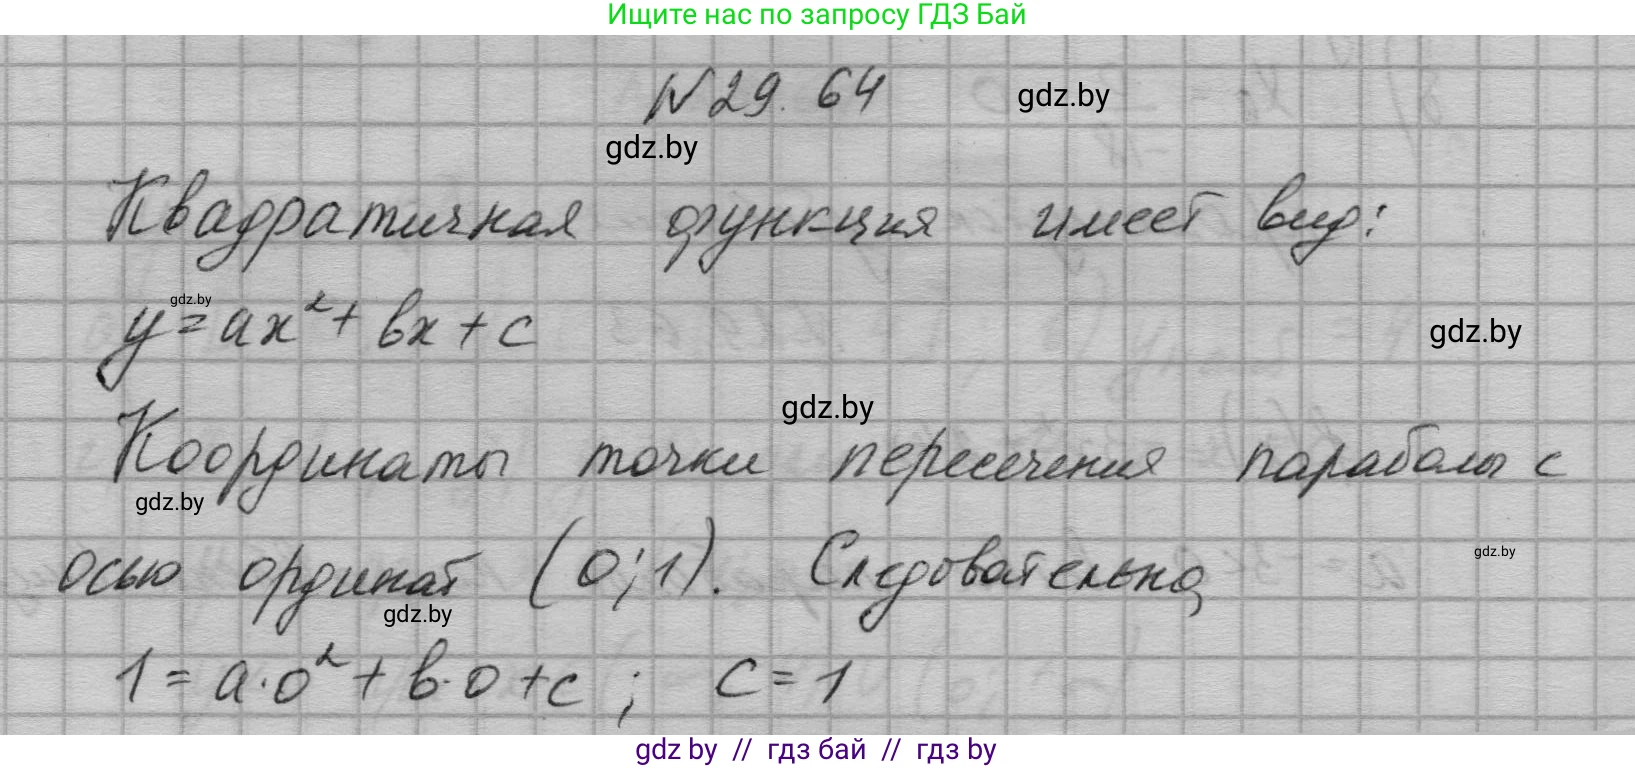 Ищите нас по запросу ГДЗ Бай
№ 29. 64
gdz.by
gdz.by
Квадратичная функция имеет вид:
gdz.by
y = ax² + bx + c
gdz.by
gdz.by
Координаты точки пересечения параболы с
gdz.by
осью ординат (0; 1). Следовательно,
gdz.by
gdz.by
1 = a·0² + b·0 + c ; c = 1
gdz by // гдз бай // гдз by